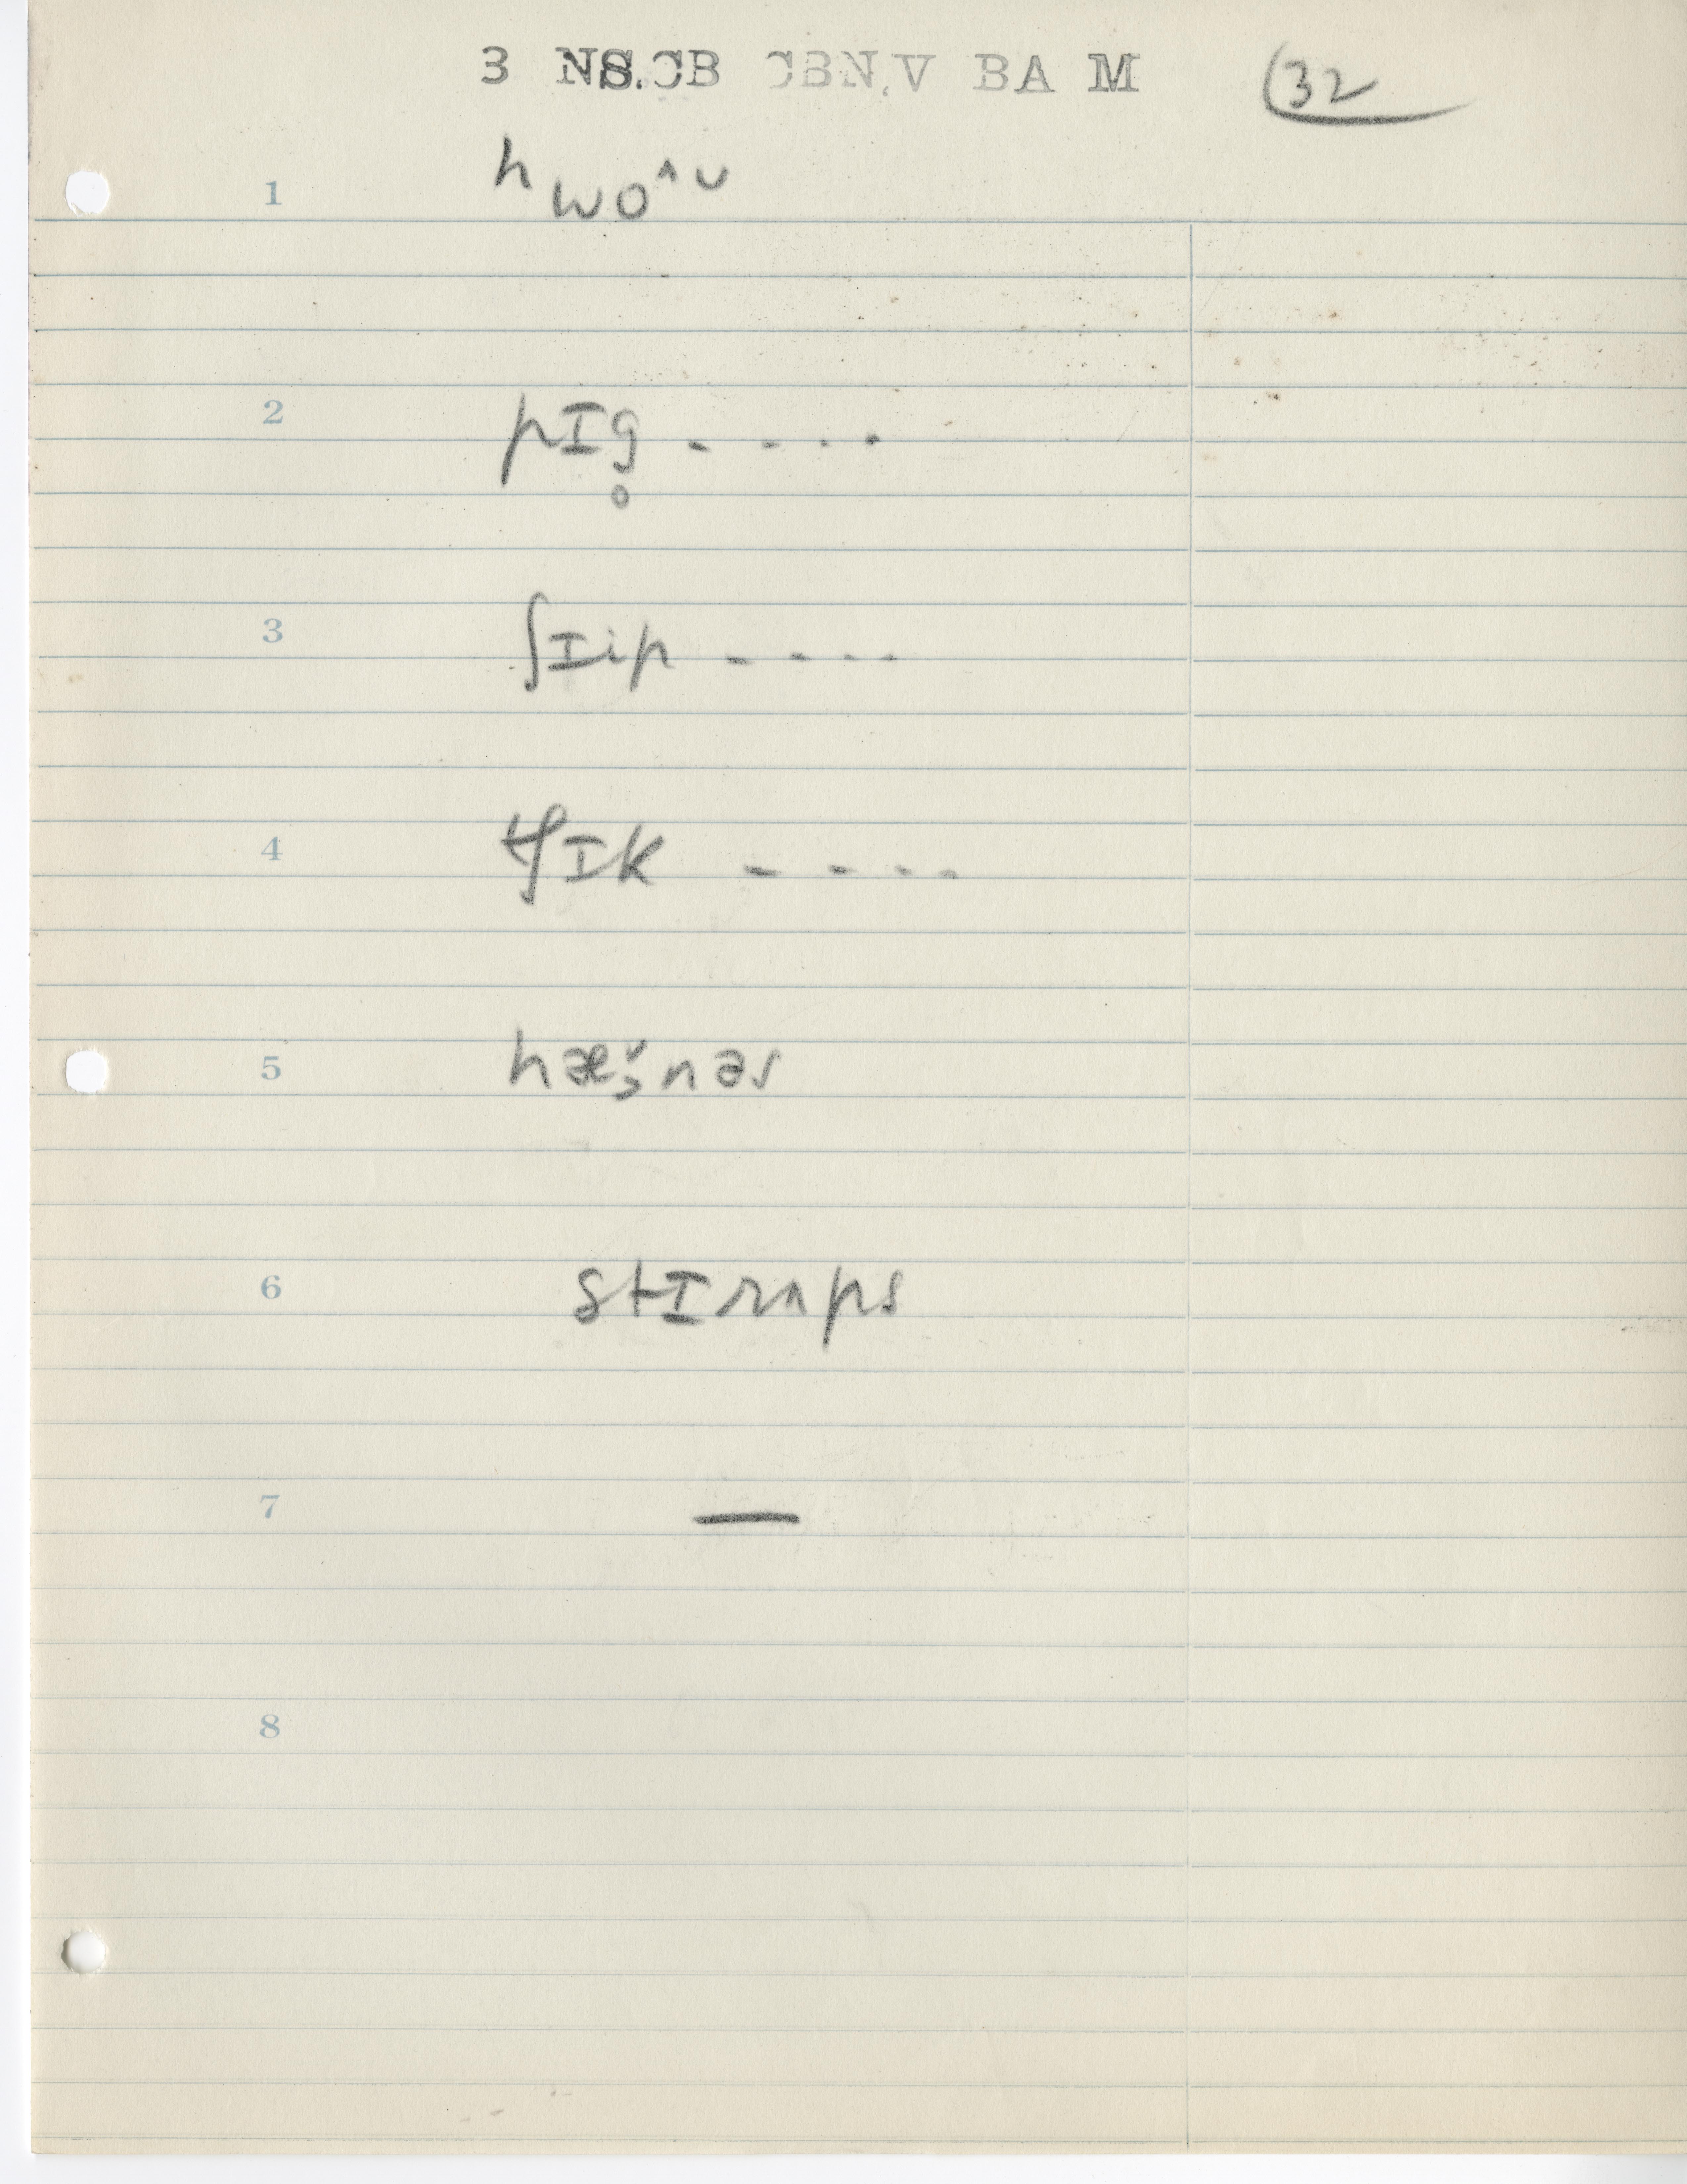 3 NS.CB CBN.V BA M (32
1 ʰwo^ᴗ
2 pɪg̥ - - - -
3 ʃɪip - - - -
4 tʃɪk - - - -
5 hæˇ̜nəs
6 stɪrʌps
7 —
8